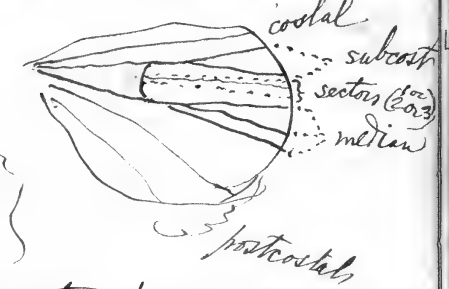 costal
subcost
sectors (1 or 2 or 3)
median
postcostals